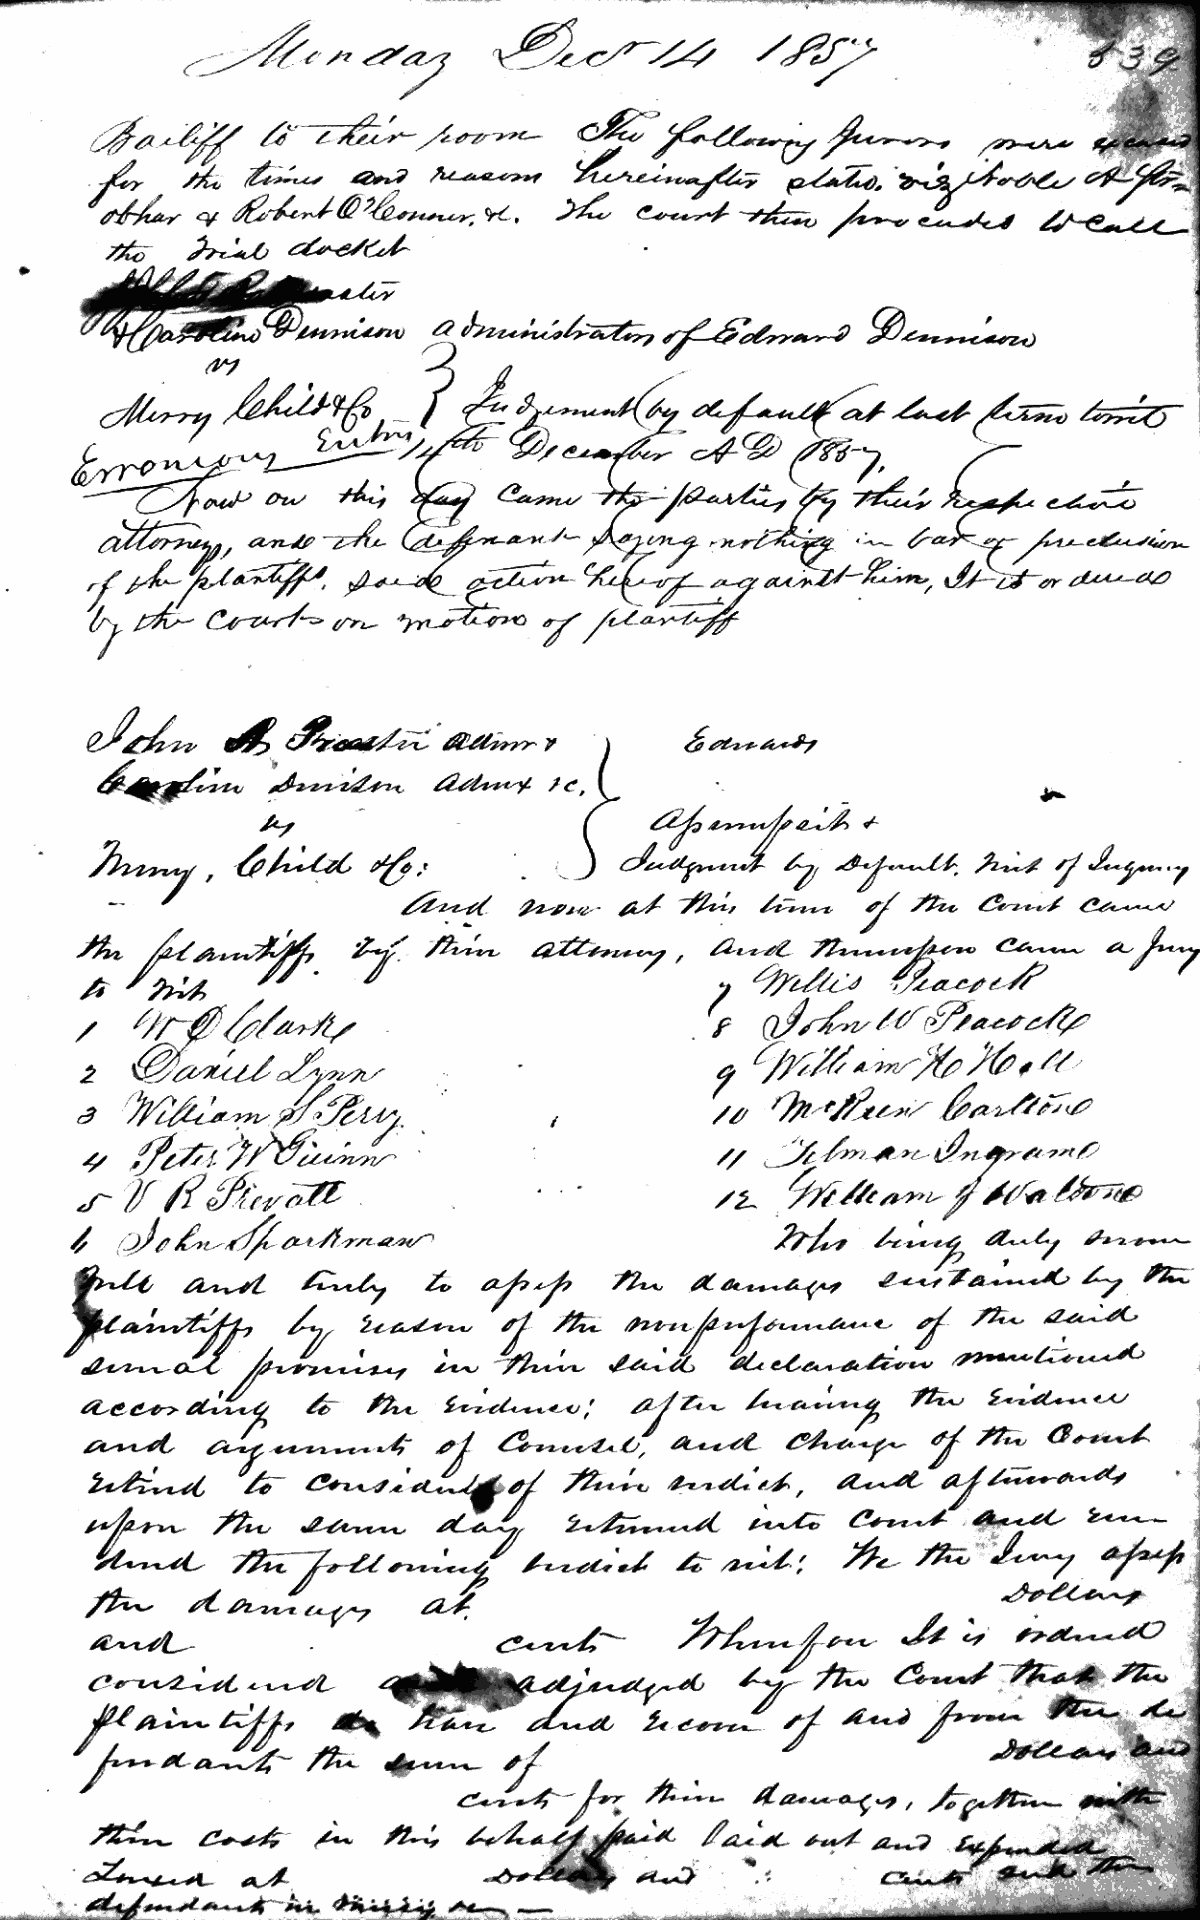 Monday Decr 14 1857 839
Bailiff to their room The following Jurors were excused
for the times and reasons hereinafter stated. viz Noble A
& Robert O'Conner, &c. The court then proceeded to call
the Trial docket
& Caroline Dennison administrators of Edward Dennison
vs
Merry Child & Co } Judgement by default at last term towit
Erroneous Entry, 14th December AD 1857.
Now on this day came the parties by their respective
attorneys, and the defenant saying nothing in bar or preclusion
of the plantiffs. said action hereof against him, It is ordered
by the court on motion of plantiff
John Admr & } Edwards
Caroline Denison Admx &c.
vs } Assumpsit &
Merry, Child & Co: Judgment by Default. Writ of Inquiry
And now at this time of the Court came
the plaintiffs by their attorney, and thereupon came a Jury
to wit 7 Willis Peacock
1 W D Clarke 8 John W Peacock
2 Daniel Lynn 9 William H Hall
3 William S Perry 10 McKeen Carlton
4 Peter W Guinn 11 Tilman Ingram
5 V R Prevatt 12 William J Waldon
6 John Sparkman Who being duly sworn
well and truly to assess the damages sustained by the
plaintiffs by reason of the nonperformance of the said
several promises in their said declaration mentioned
according to the evidence; after hearing the evidence
and arguments of Counsel, and charge of the Court
retired to consider of their verdict, and afterwards
upon the same day returned into Court and ren-
dered the following verdict to wit: We the Jury assess
the damages at Dollars
and cents Wherefore It is ordered
considered and adjudged by the Court that the
Plaintiffs do have and recover of and from the de
fendants the sum of Dollars and
cents for their damages, together with
their costs in this behalf paid laid out and expended
Taxed at Dollars and cents and the
defendants in mercy &c —